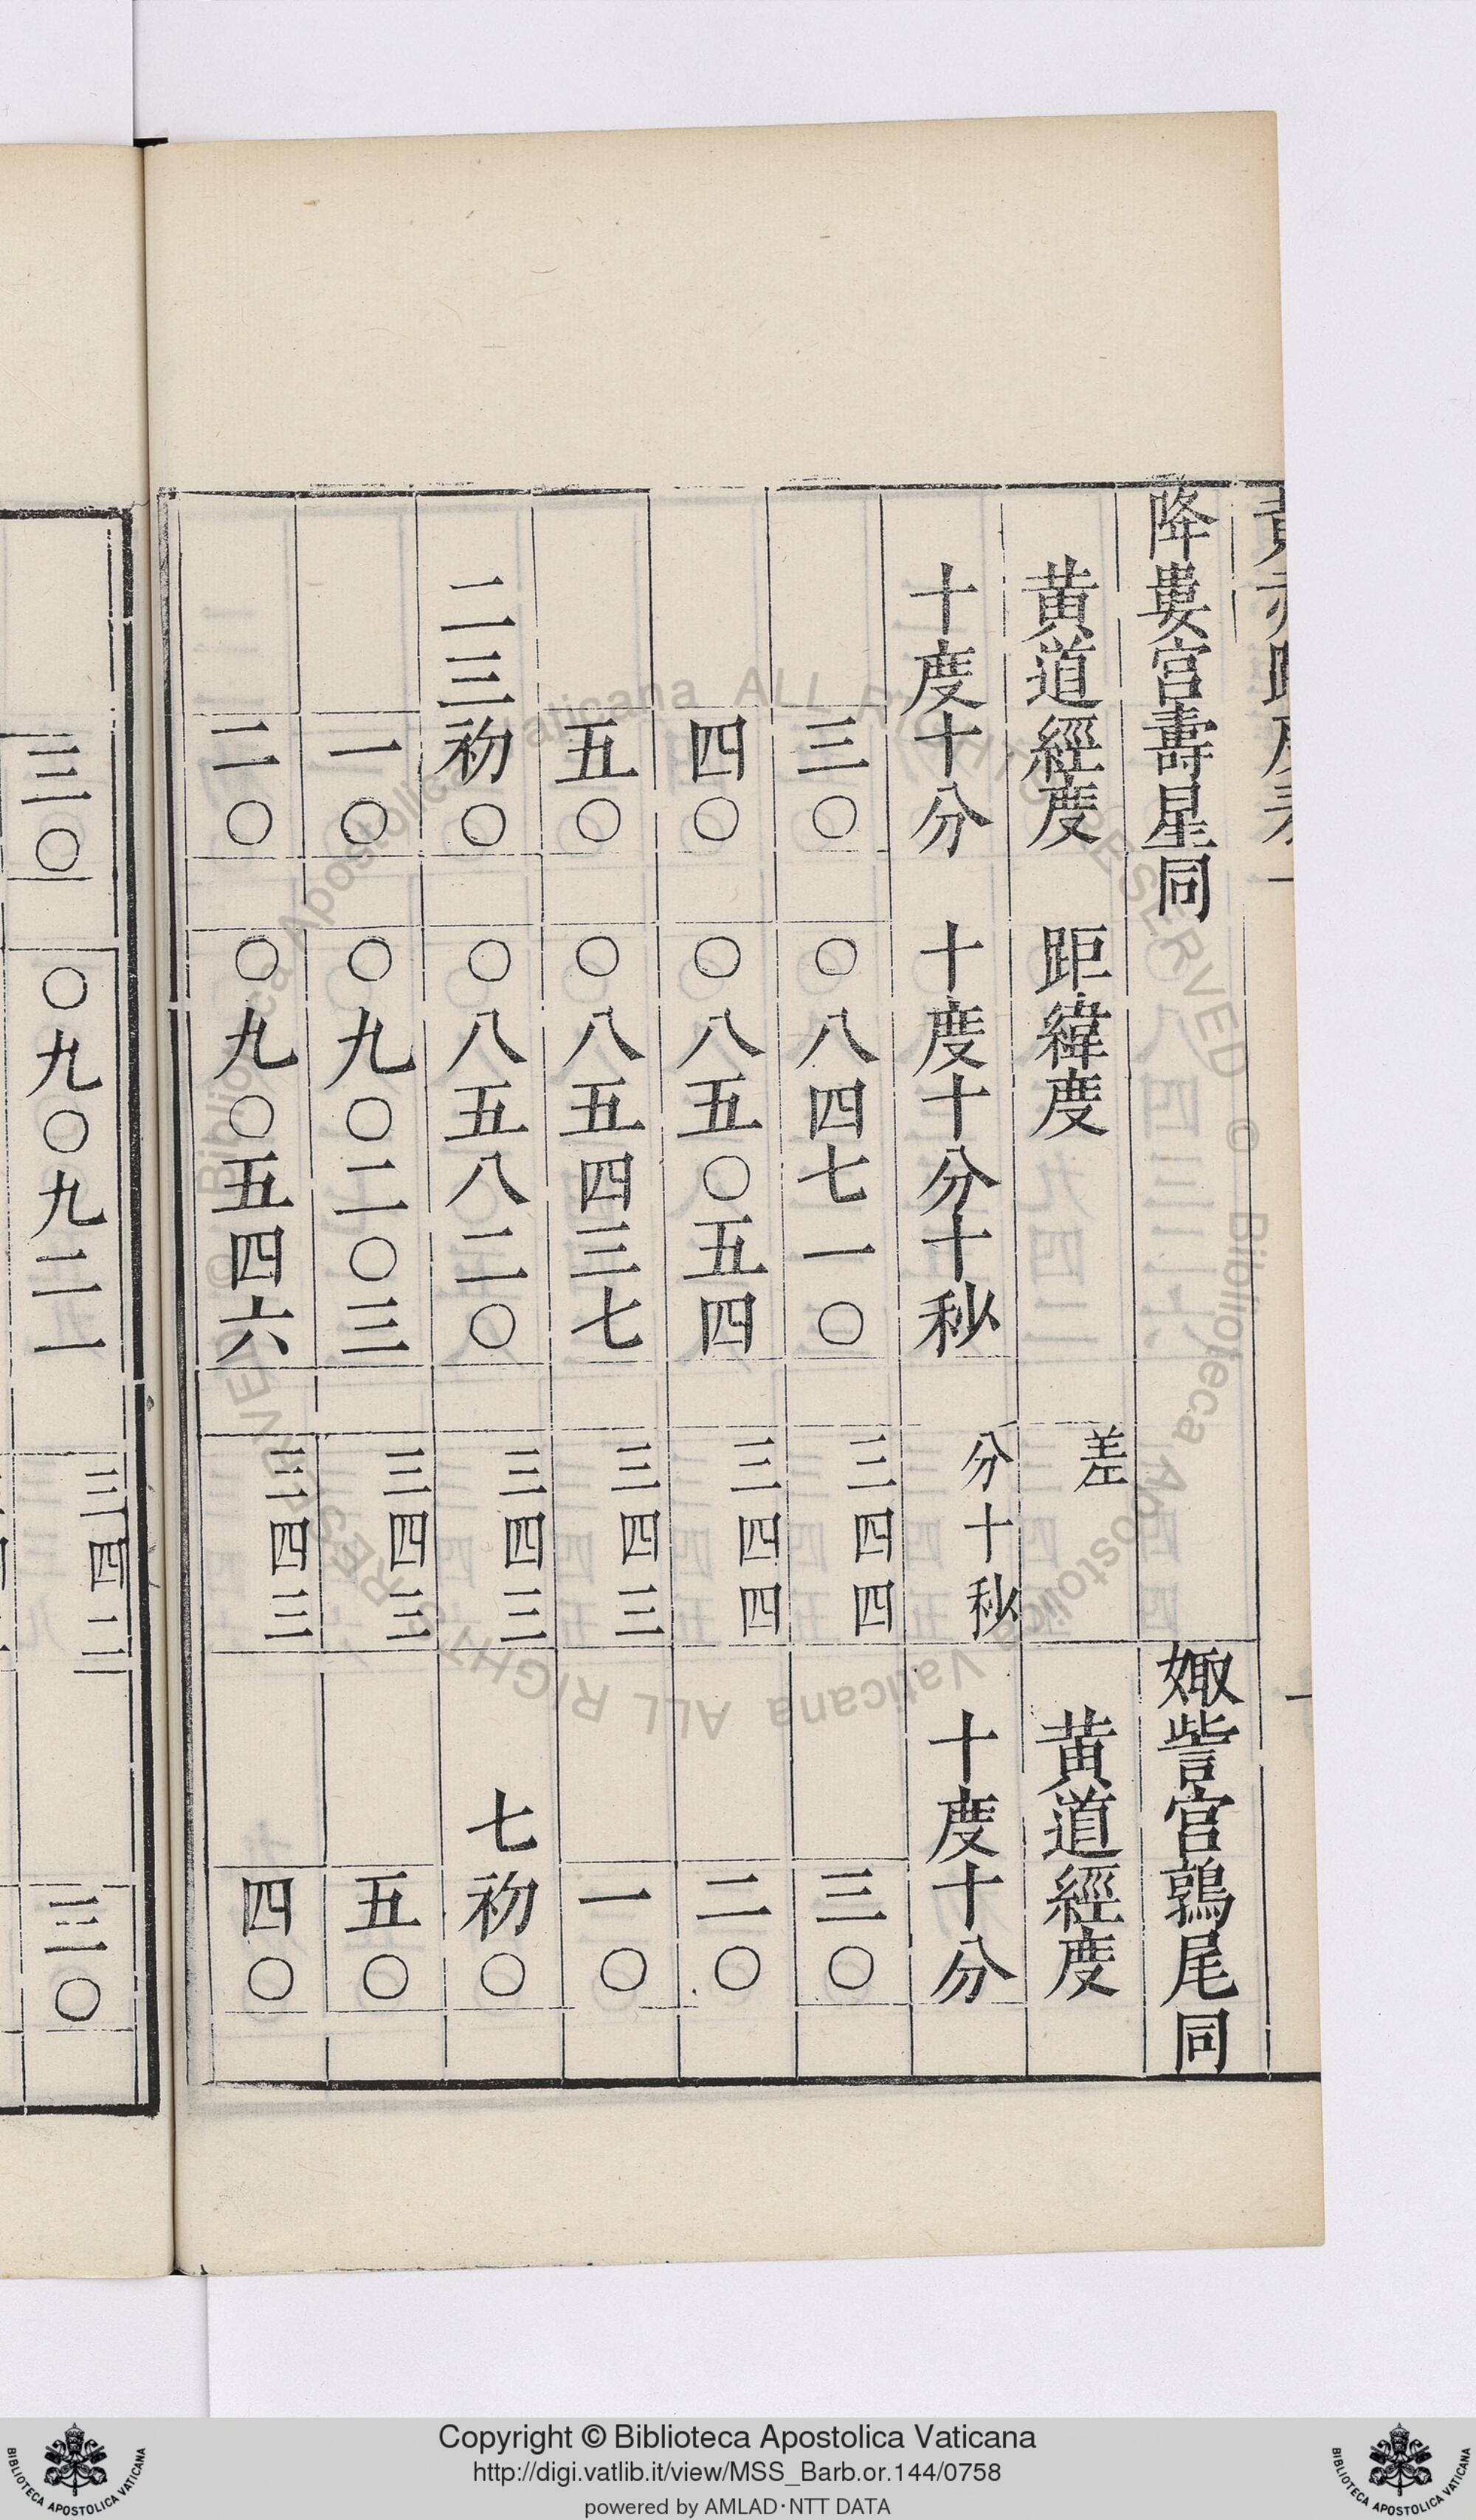 降婁宫壽星同
娵訾宫鶉尾同
黄道經度
距緯度
差
黄道經度
十度十分
十度十分十秒
分十秒
十度十分
三〇
〇八四七一〇
三四四
三〇
四〇
〇八五〇五四
三四四
二〇
五〇
〇八五四三七
三四三
一〇
二三初〇
〇八五八二〇
三四三
七初〇
一〇
〇九〇二〇三
三四三
五〇
二〇
〇九〇五四六
三四三
四〇
三〇
〇九〇九二一
三四二
三〇
Biblioteca Apostolica Vaticana ALL RIGHTS RESERVED ©
Copyright © Biblioteca Apostolica Vaticana
http://digi.vatlib.it/view/MSS_Barb.or.144/0758
powered by AMLAD·NTT DATA
BIBLIOTECA APOSTOLICA VATICANA
BIBLIOTECA APOSTOLICA VATICANA